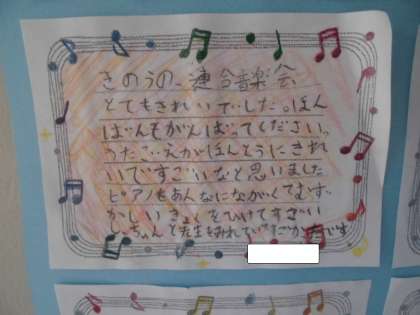 きのうの、連合音楽会
とてもきれいでした。ほん
ばんもがんばってください。
うたごえがほんとうにきれ
いですごいなと思いました
ピアノもあんなにながくてむず
かしいきょくをひけてすごい
しっちゃんと先生をみれて